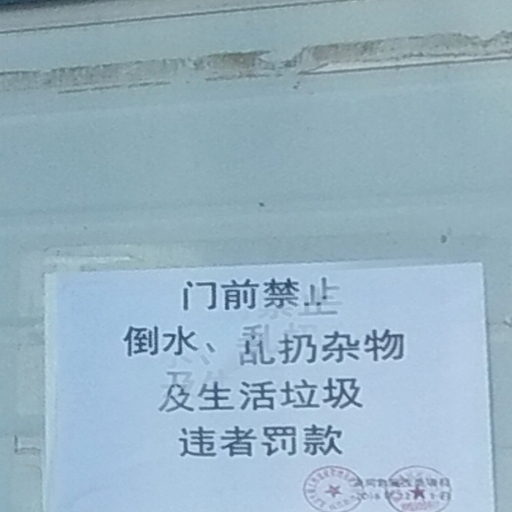 门前禁止
倒水、乱扔杂物
及生活垃圾
违者罚款